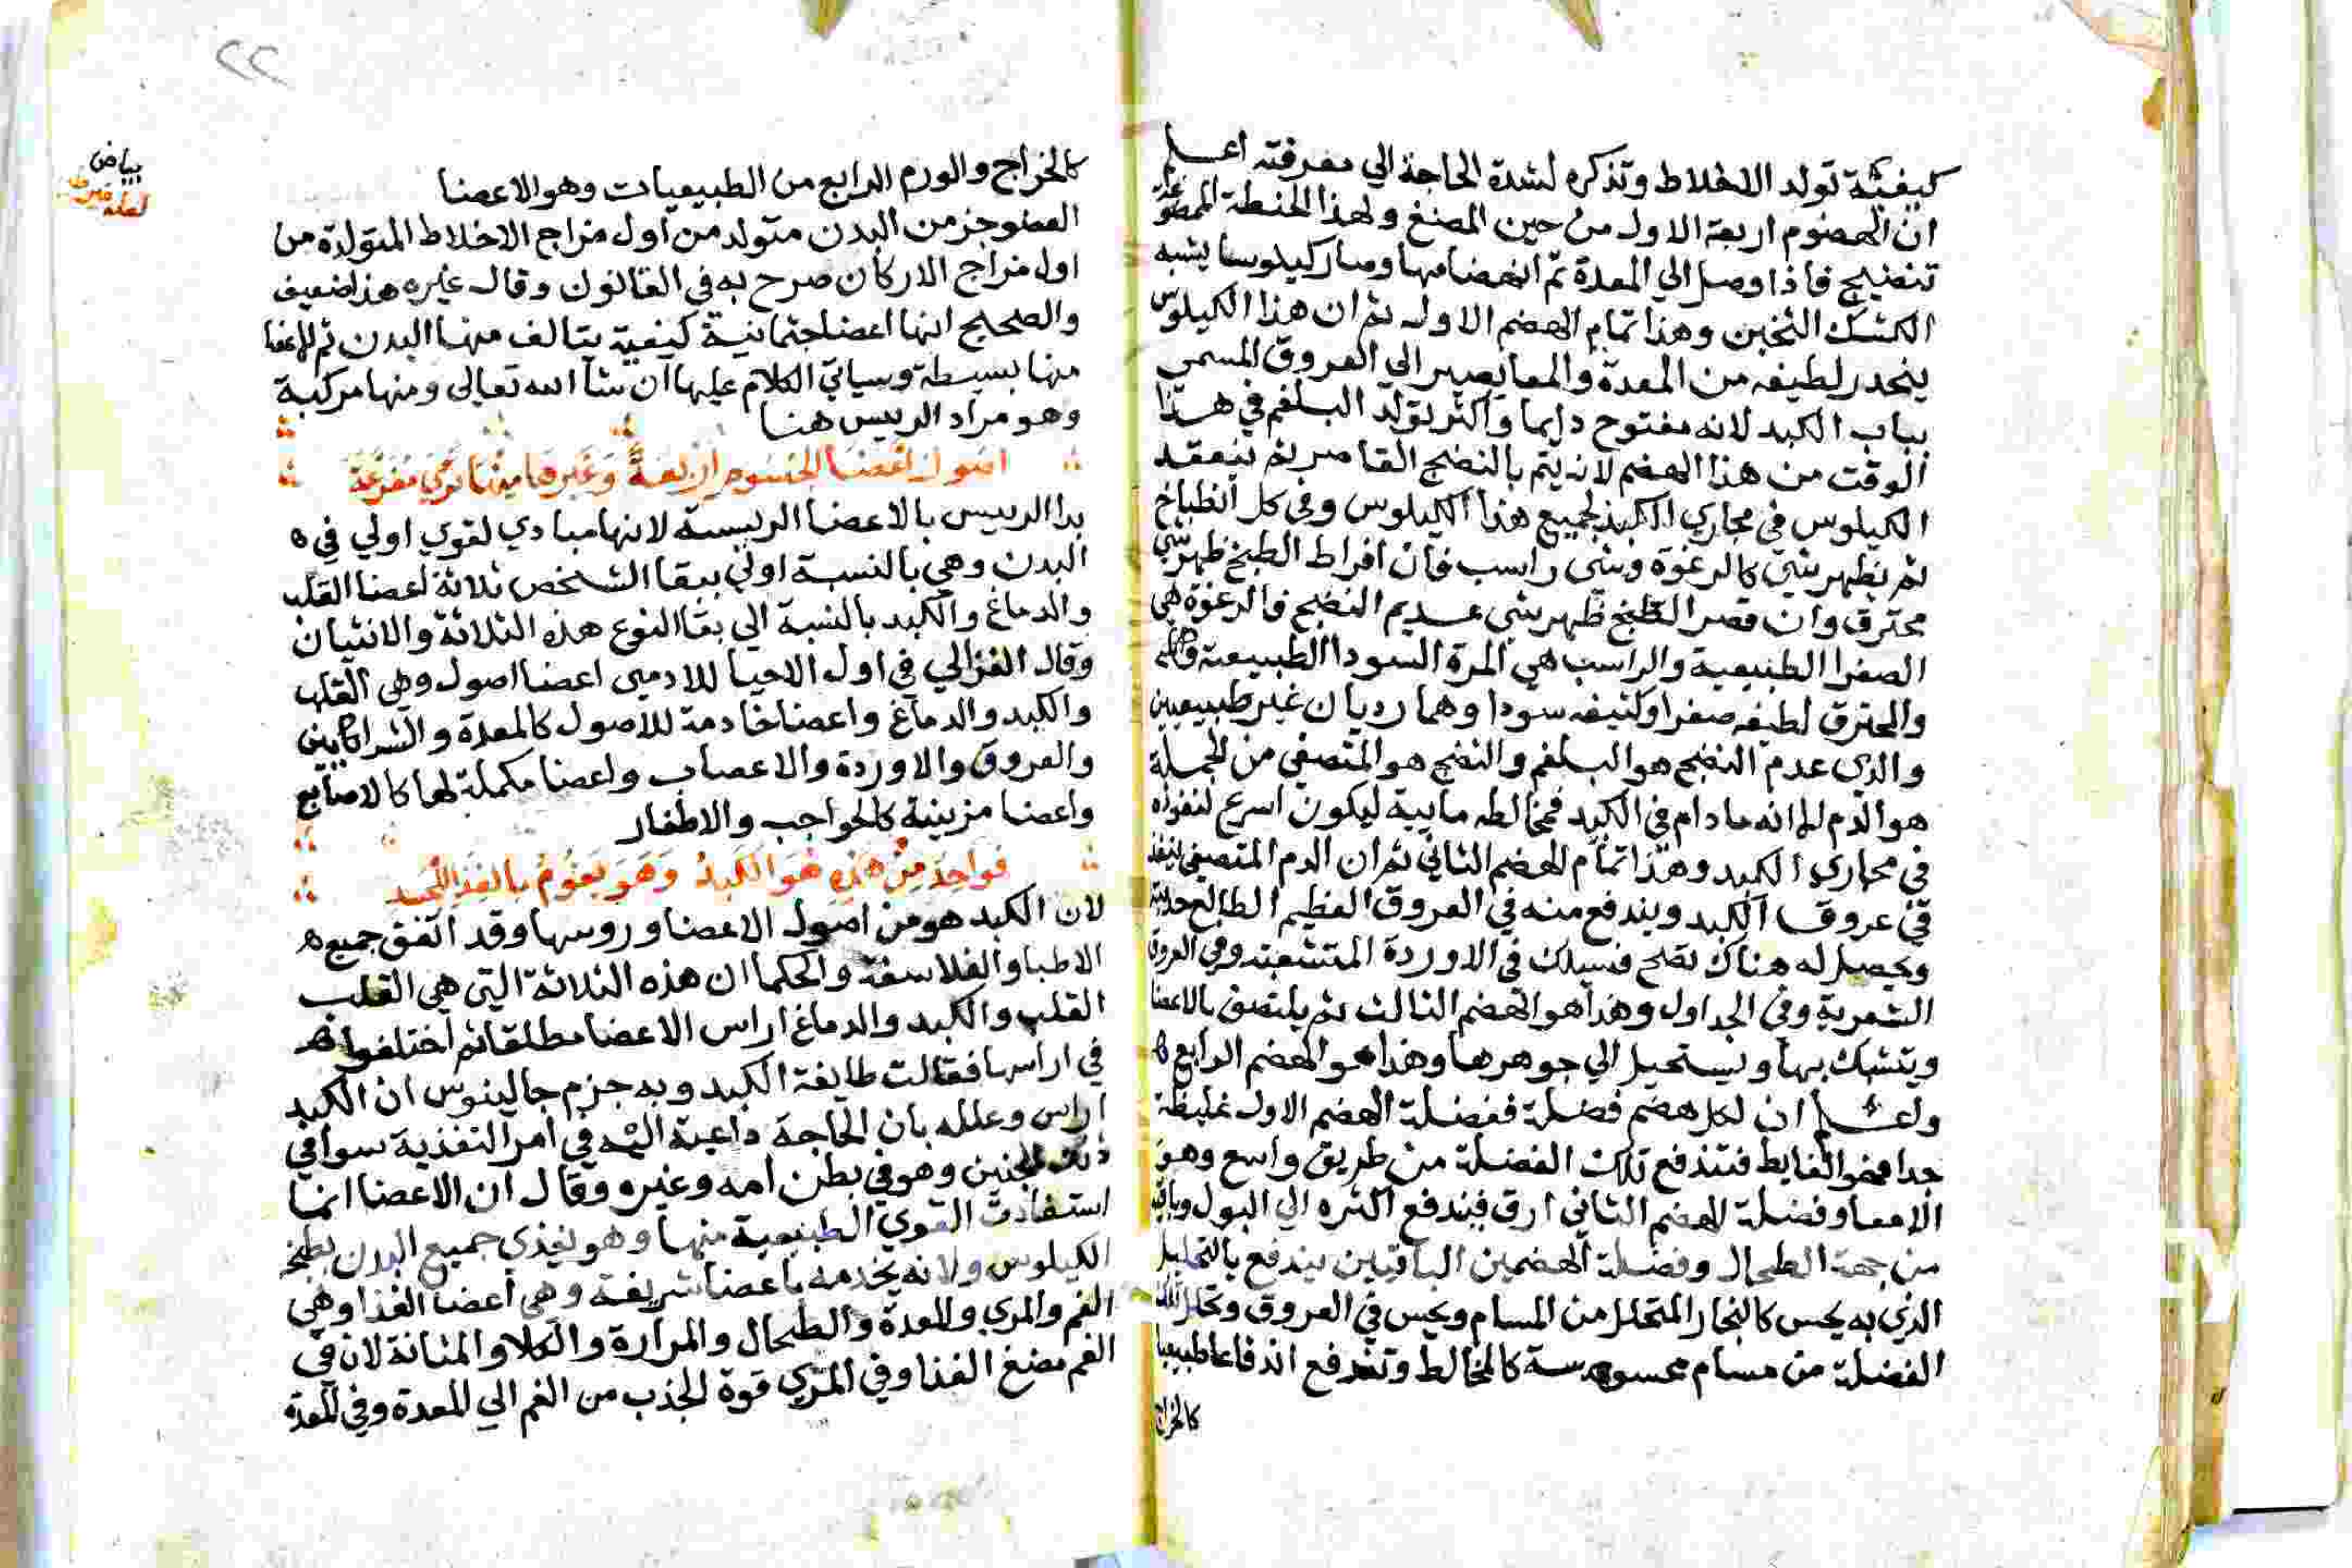 كيفية تولد الاخلاط وتذكره لشدة الحاجة الي معرفته اعلم
ان الهضوم اربعة الاول من حين المضغ ولهذا الحنطة الممضوغة
تنضيج فاذا وصل الي المعدة تم انهضامها وصار كيلوسا يشبه
الكشك الثخين وهذا تمام الهضم الاول ثم ان هذا الكيلوس
ينحدر لطيفه من المعدة والمعا يصير الي العروق المسمى
بباب الكبد لانه مفتوح دايما واكثر تولد البلغم في هذا
الوقت من هذا الهضم لانه يتم بالنضج القاصر ثم ينعقد
الكيلوس في مجاري الكبد لجميع هذا الكيلوس وفي كل انطباخ
ثم يظهر شي كالرغوة وشي راسب فان افراط الطبخ ظهر شي
محترق وان قصر الطبخ ظهر شي عديم النضج فالرغوة هي
الصفرا الطبيعية والراسب هي المرة السودا الطبيعية
والمحترق لطيفه صفرا وكثيفه سودا وهما رديان غير طبيعيين
والذي عدم النضج هو البلغم والنضج هو المتصفي من الجملة
هو الدم للا انه ما دام في الكبد فمخالطه مايية ليكون اسرع لنفوذه
في مجاري الكبد وهذا تمام الهضم الثاني ثم ان الدم المتصفي ينفذ
في عروق الكبد ويندفع منه في العروق العظيم الطالع
ويحصل له هناك نضج فيسلك في الاوردة المتشعبة وفي العروق
الشعرية وفي الجداول وهذا هو الهضم الثالث ثم يلتصق بالاعضا
ويتشبك بها ويستحيل الي جوهرها وهذا هو الهضم الرابع ه
واعلم ان لكل هضم فضلة ففضلة الهضم الاول غليظة
جدا فهو الغايط فتندفع تلك الفضلة من طريق واسع وهو
الامعا وفضلة الهضم الثاني ارق فيندفع اكثره الي البول وباقيه
من جهة الطحال وفضلة الهضمين الباقيين يندفع بالتحليل
الذي به يحس كالبخار المتحلل من المسام ويحس في العروق
الفضلة من مسام محسوسة كالمخالط وتندفع اندفاعا طبيعيا
كالخراج
٢٢
بياض
لعله
كالخراج والورم الرابع من الطبيعيات وهو الاعضا
العضو جز من البدن متولد من اول مزاج الاخلاط المتولدة من
اول مزاج الاركان صرح به في القانون وقال غيره هذا ضعيف
والصحيح انها اعضا جثمانية كيفية يتالف منها البدن ثم الاعضا
منها بسيطة وسياتي الكلام عليها ان شا الله تعالى ومنها مركبة
وهو مراد الرييس هنا
اصول اعضا الجسوم اربعة وغيرها منها تري مفرعة
بدا الرييس بالاعضا الرييسة لانها مبادي لقوي اولي في ه
البدن وهي بالنسبة اولي ببقا الشخص ثلاثة اعضا القلب
والدماغ والكبد بالنسبة الي بقا النوع هذه الثلاثة والانثيان
وقال الغزالي في اول الاحيا للادمي اعضا اصول وهي القلب
والكبد والدماغ واعضا خادمة للاصول كالمعدة والشرايين
والعروق والاوردة والاعصاب واعضا مكملة لها كالاصابع
واعضا مزينية كالحواجب والاظفار
فواحد من هذه هو الكبد وهو يقوم بالغذا للجسد
لان الكبد هو من اصول الاعضا وروسها وقد اتفق جميع ه
الاطبا والفلاسفة والحكما ان هذه الثلاثة التي هي القلب
القلب والكبد والدماغ اراس الاعضا مطلقا ثم اختلفوا
في اراسها فقالت طايفة الكبد وبه جزم جالينوس ان الكبد
اراس وعلله بان الحاجة داعية اليه في امر التغذية سوا في
ذلك الجنين وهو في بطن امه وغيره وقال ان الاعضا انما
استفادت القوي الطبيعية منها وهو يغذي جميع البدن بطبخ
الكيلوس ولانه يخدمه باعضا شريفة وهي اعضا الغذا وهي
الفم والمري والمعدة والطحال والمرارة والكلا والمثانة لان في
الفم مضغ الغذا وفي المري قوة الجذب من الفم الي المعدة وفي المعدة